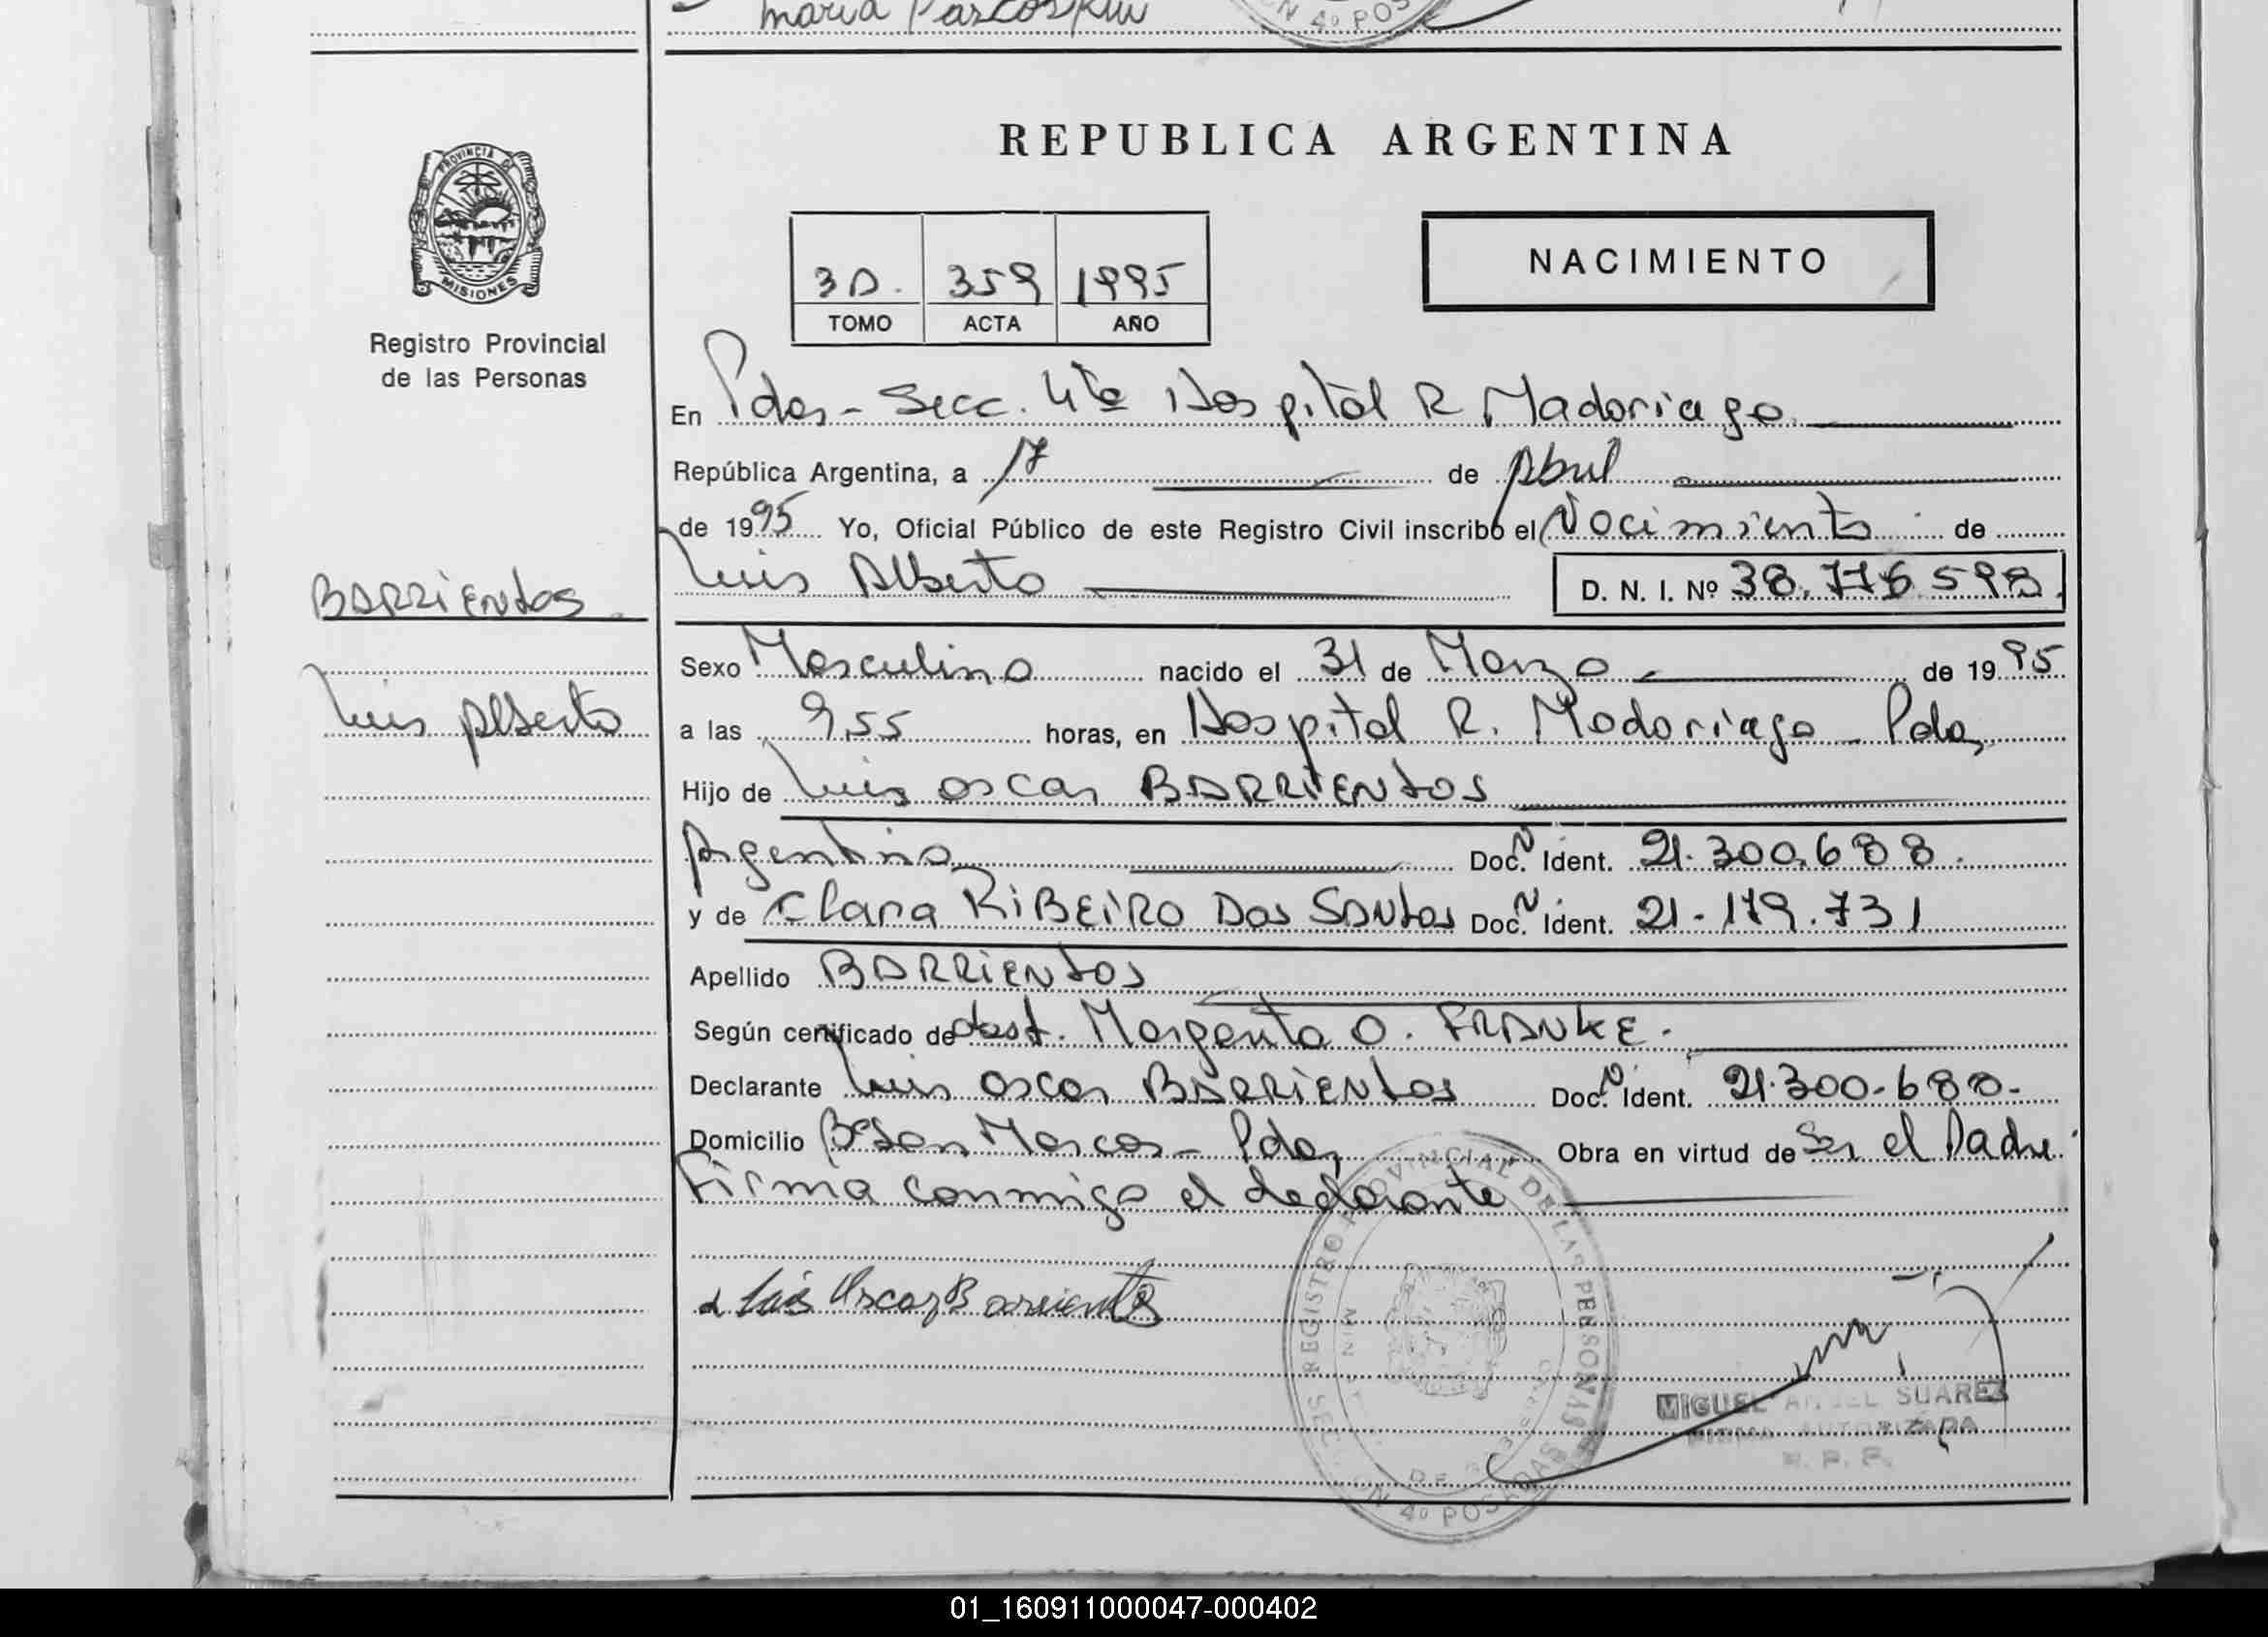 Maria
N 4º POS
REPUBLICA ARGENTINA
PROVINCIA DE
MISIONES
Registro Provincial
de las Personas
NACIMIENTO
3D. 359 1995
TOMO ACTA AÑO
En Pdas - Secc. 4ta Hospital R Madariaga
República Argentina, a 17 de Abril
de 1995 Yo, Oficial Público de este Registro Civil inscribo el Nacimiento de
Luis Alberto D. N. I. Nº 38.776.598
BARRIENtos
Sexo Masculino nacido el 31 de Marzo de 1995
Luis Alberto
a las 9,55 horas, en Hospital R. Madariaga - Pdas
Hijo de Luis Oscar BARRIENtOS
Argentino Doc. N Ident. 21.300.688.
y de Clara RiBEiRO Dos SANtos Doc. N Ident. 21.179.731
Apellido BARRIENtOS
Según certificado de obst. Margarita O. FRANKE.
Declarante Luis Oscar BARRIENtos Doc. N Ident. 21.300.688.
Domicilio Bº San Marcos - Pdas Obra en virtud de Ser el Padre.
Firma conmigo el declarante
Luis Oscar Barrientos
REGISTRO PROVINCIAL DE LAS PERSONAS
N 4º POSADAS
MIGUEL ANGEL SUAREZ
FIRMA AUTORIZADA
R. P. P.
01_160911000047-000402